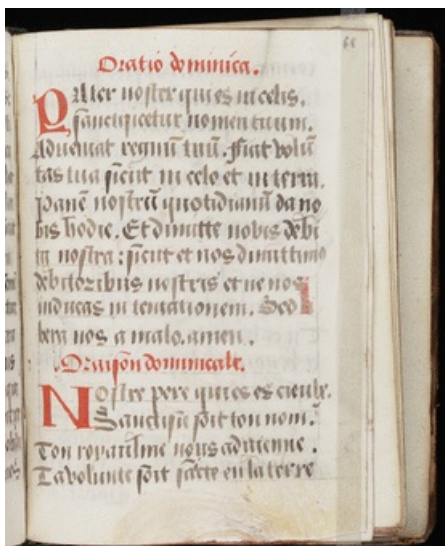 Oratio dominica.
PAter noster qui es in celis.
sanctificetur nomen tuum.
Adueniat regnū tuū. fiat volū
tas tua sicut in celo et in terra.
panē nostrū quotidianū da no
bis hodie. Et dimitte nobis debi
ta nostra : sicut et nos dimittimꝰ
debitoribus nostris et ne nos
inducas in tentationem. Sed li
bera nos a malo. amen.
Oraison dominicale.
NOstre pere qui es es cieulx.
Sanctifie soit ton nom.
Ton royaulme nous aduienne.
Ta volunte soit faicte en la terre